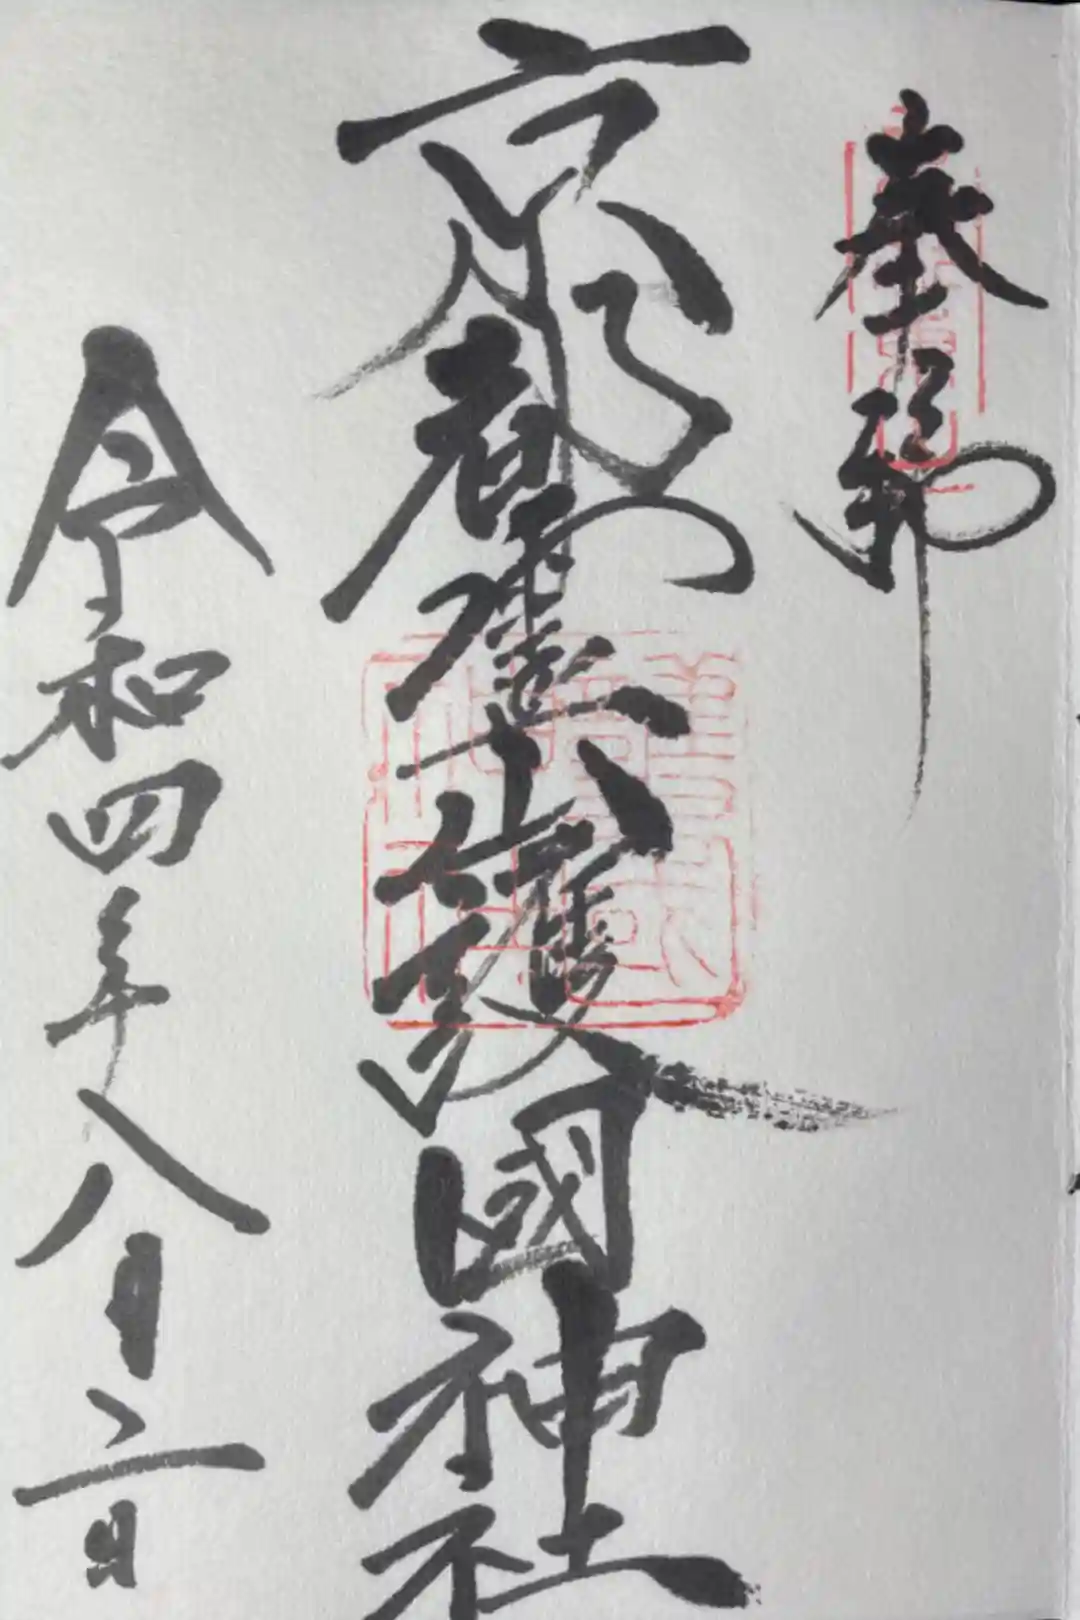 奉拝
京都霊山護國神社
令和四年八月二日